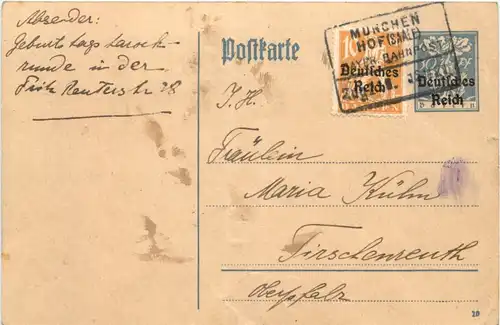 Absender:
Geburtstags tarock-
runde in der
Fritz Reuterstr 28
Postkarte
MÜNCHEN
HOF (SAALE)
BAHNPOST
10
Deutsches
Reich
Deutsches
Reich
Bayern
I. H.
Fräulein
Maria Kühn
Tirschenreuth
Oberpfalz
20